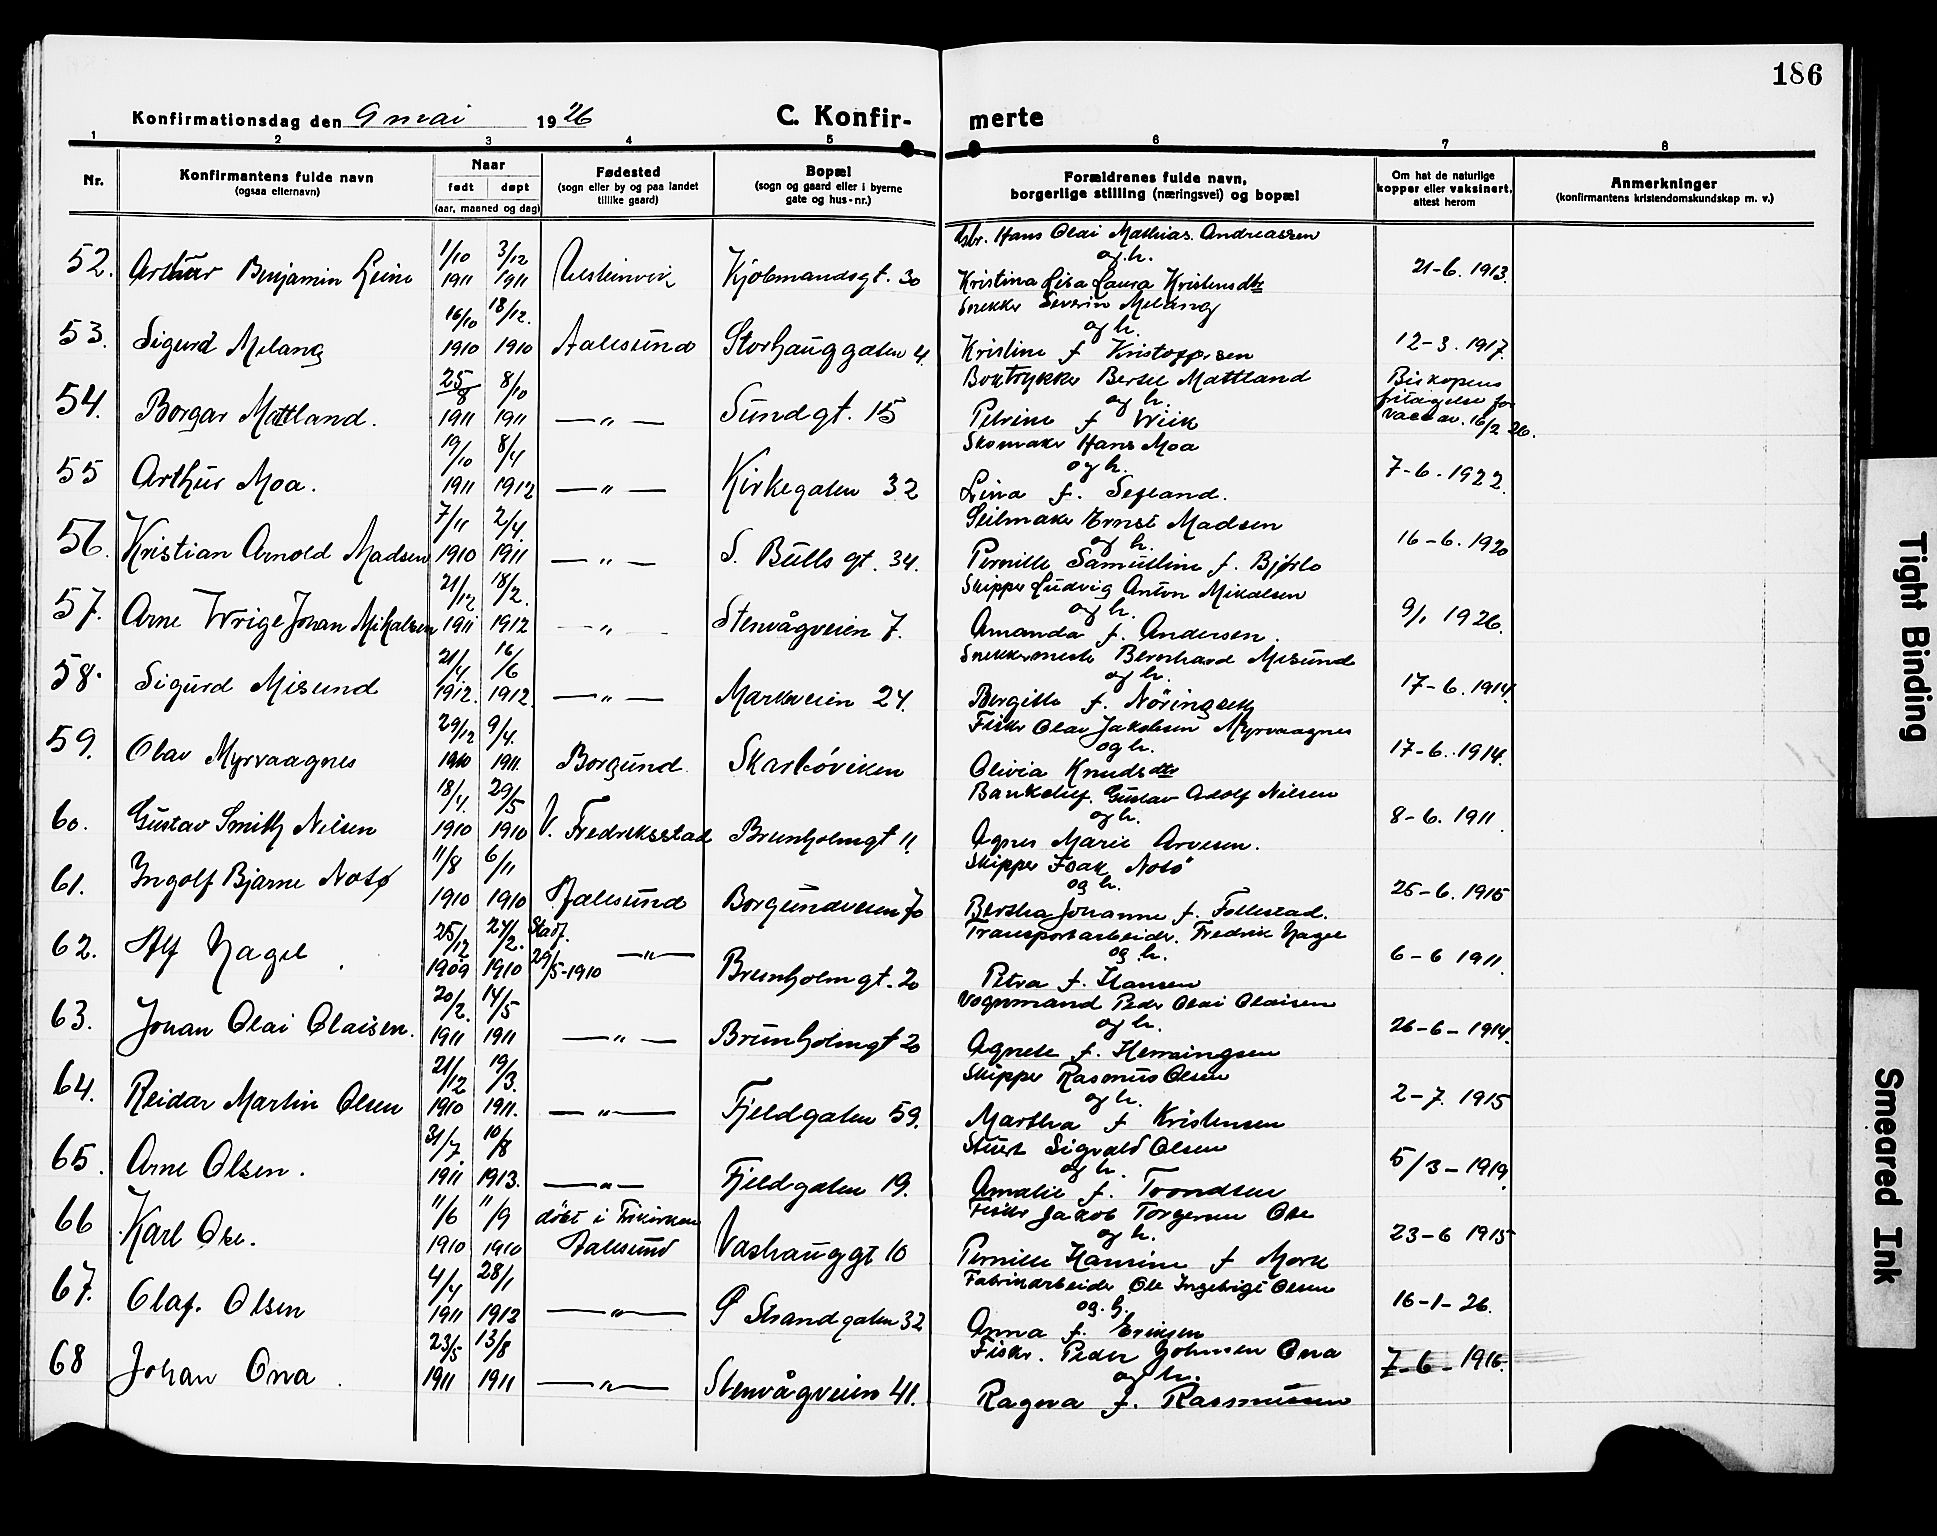 186
Konfirmationsdag den 9 mai 1926 C. Konfir- merte
1 2 3 4 5 6 7 8
Nr. Konfirmantens fulde navn (ogsaa efternavn) Naar født døpt (aar, maaned og dag) Fødested (sogn eller by og paa landet tillike gaard) Bopæl (sogn og gaard eller i byerne gate og hus-nr.) Forældrenes fulde navn, borgerlige stilling (næringsvei) og bopæl Om hat de naturlige kopper eller vaksinert, attest herom Anmerkninger (konfirmantens kristendomskundskap m. v.)
Hans Olai Mathias Andreassen
52. Arthur Benjamin Leine 1/10 1911 3/12 1911 Ulsteinvik Kjøbmandsgt. 30 og h. 21-6. 1913.
Kristina Lisa Laura Kristensdtr
Snekker Severin Melang
53. Sigurd Melang 16/10 1910 18/12. 1910 Aalesund Storhauggaten 4. og h. 12-3. 1917.
Kristine f Kristoffersen
Boktrykker Bertel Mattland
54. Borgar Mattland. 25/8 1911 8/10 1911 —"— Sundgt. 15 og h. Biskopens fritagelse for vaccav. 16/2 26.
Petrine f Wiik
Skomaker Hans Moa
55 Arthur Moa. 19/10 1911 8/4 1912 —"— Kirkegaten 32 og h. 7-6. 1922.
Lina f. Sefland.
Seilmaker Ernst Madsen
56. Kristian Arnold Madsen 7/11 1910 2/4. 1911 —"— S. Bulls gt. 34. og h. 16-6. 1920
Pernille Samueline f. Bjørlo
Skipper Ludvig Anton Mikalsen
57. Arne Wrige Johan Mikalsen 21/12 1911 18/2. 1912 -"- Stenvågveien 7. og h. 9/1 1926.
Amanda f. Andersen.
Snekkermester Bernhard Misund
58. Sigurd Misund 21/4 1912. 16/6 1912. —"— Markveien 24. og h. 17-6. 1914.
Bergitte f. Nöringseth
Fisker Olav Jakobsen Myrvaagnes
59. Olav Myrvaagnes 29/12 1910 9/4. 1911. Borgund Skarbøviken og h. 17-6. 1914.
Olivia Knudsdtr
Bankchef. Gustav Adolf Nilsen
60. Gustav Smith Nilsen 18/4. 1910 29/5 1910 V. Fredriksstad Brunholmgt 11. og h. 8-6. 1911.
Agnes Marie Arvesen.
Skipper Isak Notö
61. Ingolf Bjarne Notø 11/8 1910 6/11 1910 Aalesund Borgundveien 70 og h. 25-6. 1915
Bertha Johanne f. Follestad.
Transportarbeider. Fredrik Nagel
62. Alf Nagel 25/12 1909 27/2. 1910 Stadf. 29/5-1910 —"— Brunholmgt. 20 og h. 6-6 1911.
Petra f. Hansen
Vognmand Peder Olai Olaisen
63. Johan Olai Olaisen. 20/2. 1911 14/5 1911 —"— Brunholmgt 20 og h. 26-6-1914.
Agnete f. Henningsen
Skipper Rasmus Olsen
64. Reidar Martin Olsen 21/12 1910 19/3. 1911. —"— Fjeldgaten 59. og h. 2-7. 1915
Martha f Kristensen
Stuert Sigvald Olsen
65. Arne Olsen. 31/7. 1911 10/8 1913. —"— Fjeldgaten 19. og h. 5/3-1919.
Amalie f. Trondsen
Fisker Jakob Torgersen Ose
66 Karl Ose. 11/6 1910 11/9 1910 døbt i Frikirken Aalesund Vashauggt 10 og h. 23-6 1915
Pernille Hansine f Mork
Fabrikarbeider Ole Ingebrigt Olsen
67. Olaf. Olsen 4/4 1911 28/1 1912 —"— Ø Strandgaten 32 og h. 16-1-26.
Anna f. Eriksen
Fisker. Peder Johnsen Ona
68 Johan Ona. 23/5 1911 13/8 1911 —"— Stenvågveien 41. og h. 7-6-1916.
Ragna f. Rasmussen
Tight Binding
Smeared Ink